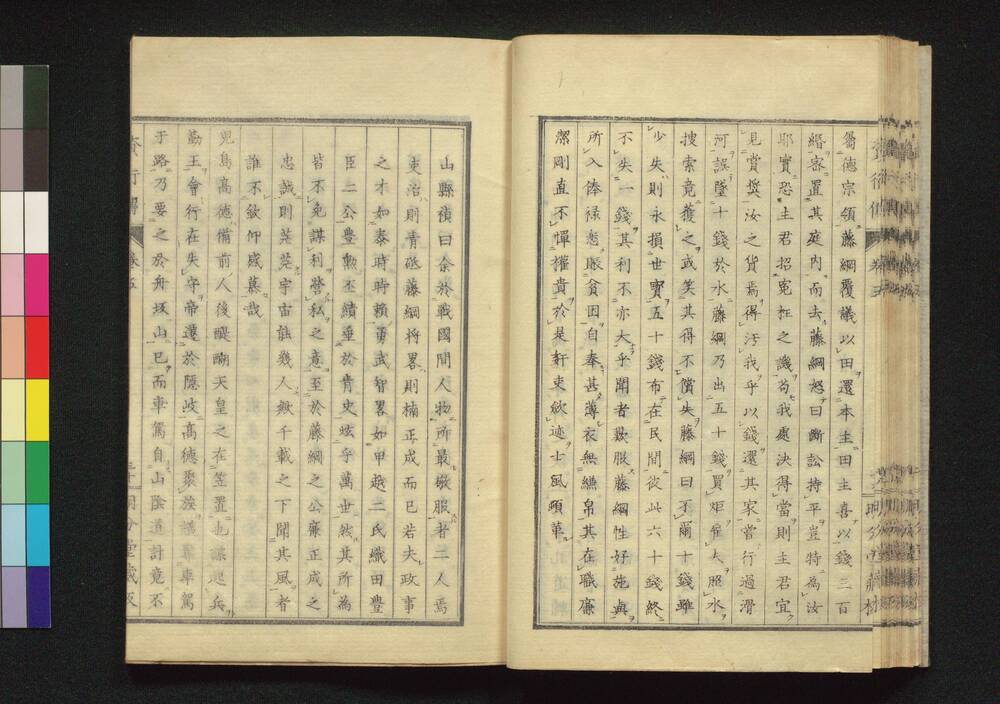 屬德宗領藤綱覆議以田還本主田主喜以錢三百
緡密置其庭內而去藤綱怒曰斷訟持平豈特為汝
耶實恐主君招冤枉之譏苟我處決得當則主君宜
見賞奬汝之貨焉得汚我乎以錢還其家嘗行過滑
河誤墮十錢於水藤綱乃出五十錢買炬雇人照水
搜索竟獲之或笑其得不償失藤綱曰不爾十錢雖
少失則永損世寶五十錢布在民間彼此六十錢終
不失一錢其利不亦大乎聞者歎服藤綱性好施與
所入俸祿悉賑貧困自奉甚薄衣無縑帛其在職廉
潔剛直不憚權貴於是奸吏斂迹士風頓革
山縣禎曰余於戰國間人物所最敬服者二人焉
吏治則青砥藤綱將畧則楠正成而已若夫政事
之才如泰時時賴勇武智畧如甲越二氏織田豐
臣二公豐勳丕績垂於青史炫乎萬世然其所為
皆不免謀利營私之意至於藤綱之公廉正成之
忠誠則茫茫宇宙能幾人歟千載之下聞其風者
誰不欽仰感慕哉
兒島高德備前人後醍醐天皇之在笠置也謀起兵
勤王會行在失守帝遷於隱岐高德聚族議奪車駕
于路乃要之於舟坂山已而車駕自山陰道計竟不